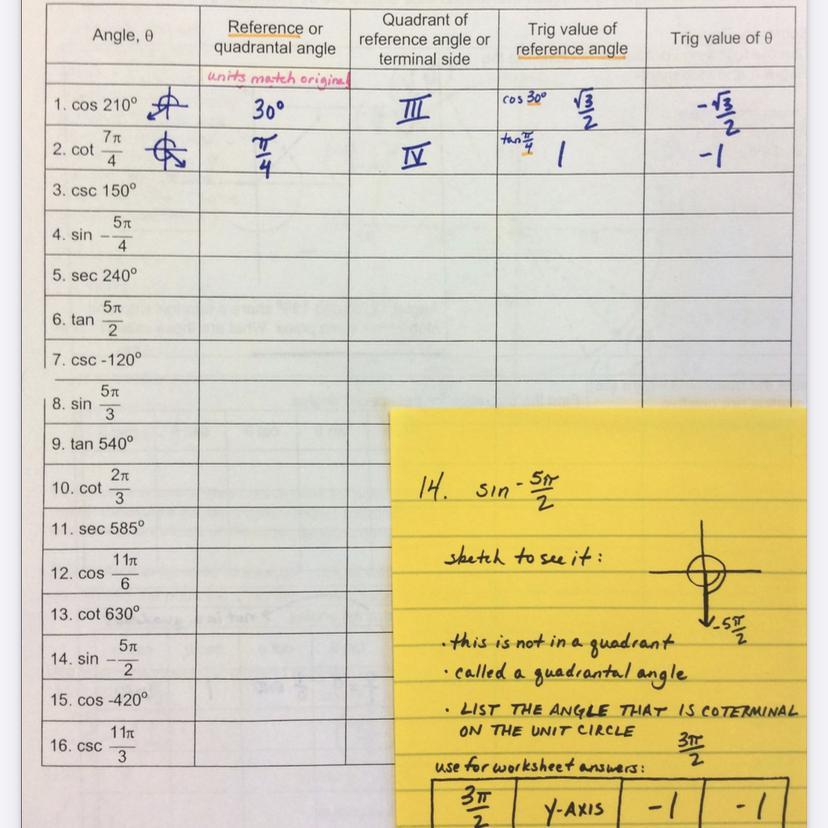 Angle, θ | Reference or quadrantal angle | Quadrant of reference angle or terminal side | Trig value of reference angle | Trig value of θ
units match original
1. cos 210º | 30º | III | cos 30º √3/2 | -√3/2
2. cot 7π/4 | π/4 | IV | tan π/4 1 | -1
3. csc 150º
4. sin -5π/4
5. sec 240º
6. tan 5π/2
7. csc -120º
8. sin 5π/3
9. tan 540º
10. cot 2π/3
11. sec 585º
12. cos 11π/6
13. cot 630º
14. sin -5π/2
15. cos -420º
16. csc 11π/3
14. sin -5π/2
sketch to see it:
-5π/2
• this is not in a quadrant
• called a quadrantal angle
• LIST THE ANGLE THAT IS COTERMINAL
ON THE UNIT CIRCLE 3π/2
use for worksheet answers:
3π/2 | Y-AXIS | -1 | -1